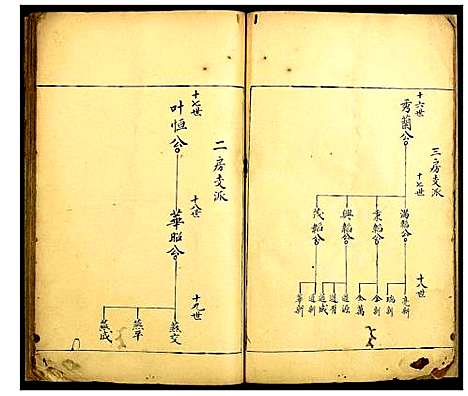 三房支派
十六世
秀蘭公
十七世
滿韜公
秉韜公
興韜公
茂韜公
十八世
亮新
瑞新
金新
金萬
道源
道晉
道成
道新
華新
二房支派
十七世
叶恒公
十八世
華昭公
十九世
燕文
燕平
燕成